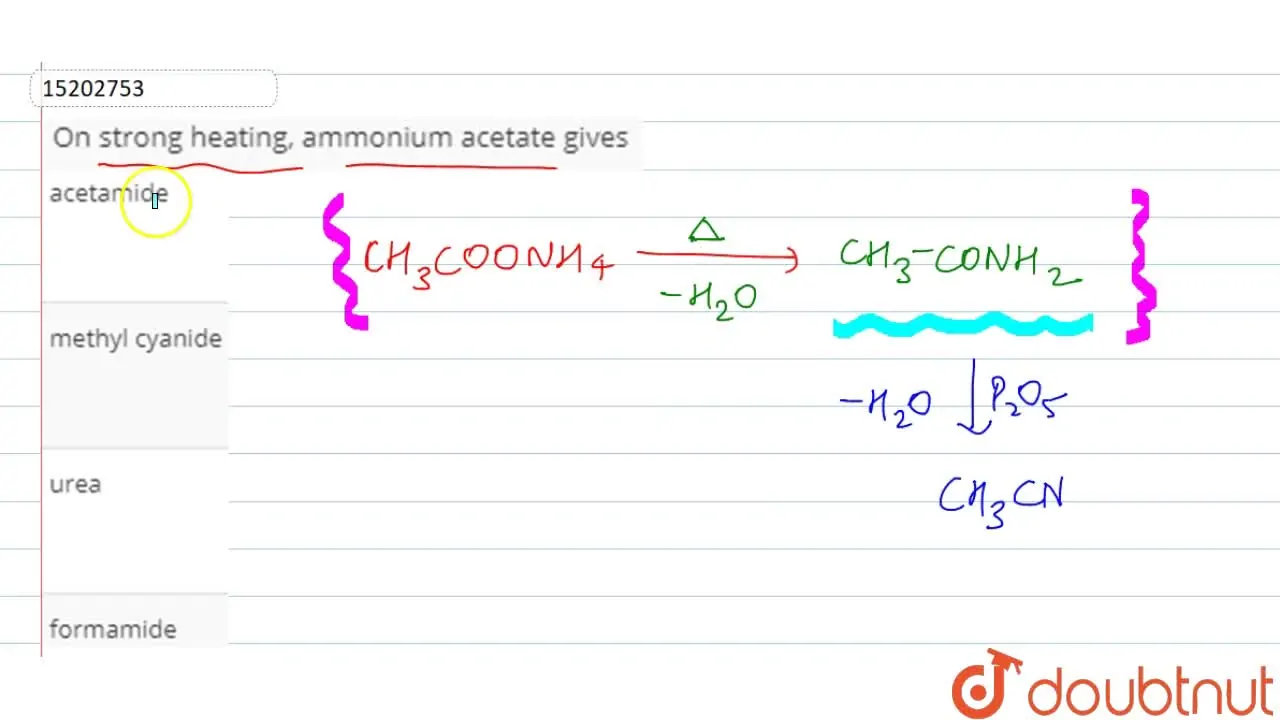 15202753
On strong heating, ammonium acetate gives
acetamide
methyl cyanide
urea
formamide
CH₃COONH₄ —Δ→ CH₃-CONH₂
-H₂O
-H₂O ↓ P₂O₅
CH₃CN
doubtnut